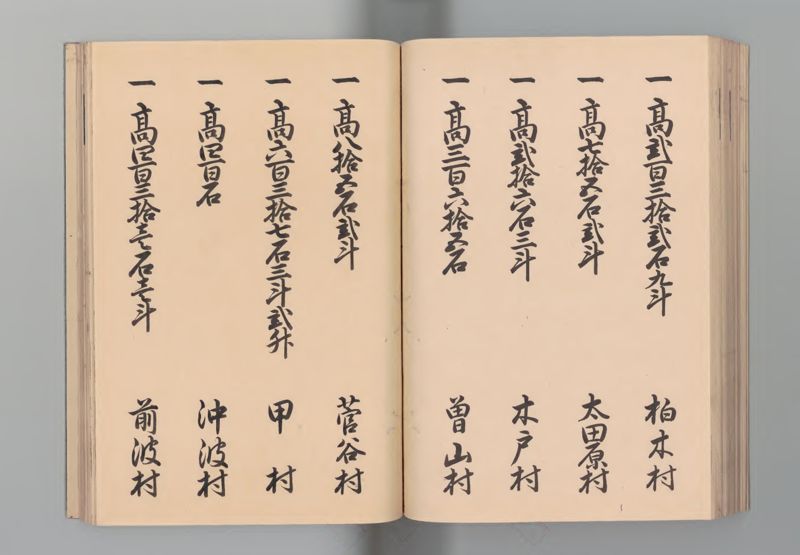 一 高弐百三拾弐石九斗 柏木村
一 高七拾五石弐斗 太田原村
一 高弐拾六石三斗 木戸村
一 高三百六拾五石 曽山村
一 高八拾五石弐斗 菅谷村
一 高六百三拾七石三斗弐升 甲村
一 高四百石 沖波村
一 高四百三拾壱石壱斗 前波村